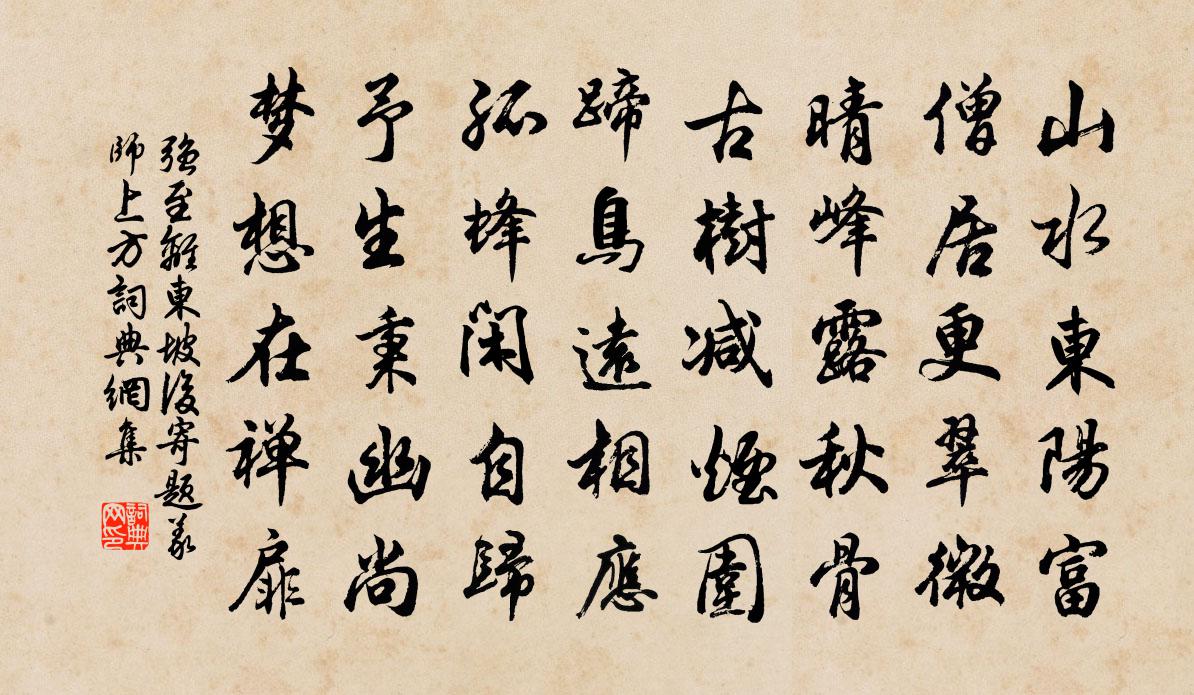 山水東陽富
僧居更翠微
晴峰露秋骨
古樹減煙圍
蹄鳥遠相應
孤蜂閑自歸
予生秉幽尚
梦想在禅扉
強至離東坡後寄題義
師上方詞典網集
詞典
网印